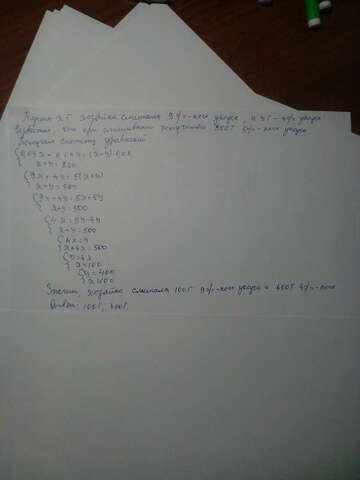 Пусть x г хозяйка смешала 9%-ного уксуса, а y г - 4% уксуса
Известно, что при смешивании получилось 500г 5%-ного уксуса
Составим систему уравнений
{0,09x + 0,04y = (x+y)·0,05
x+y=500
{9x+4y = 5(x+y)
x+y=500
{9x+4y=5x+5y
x+y=500
{4x=5y-4y
x+y=500
{4x=y
x+4x=500
{y=4x
x=100
{y=400
x=100
Значит, хозяйка смешала 100г 9%-ного уксуса и 400г 4%-ного
Ответ: 100г, 400г.